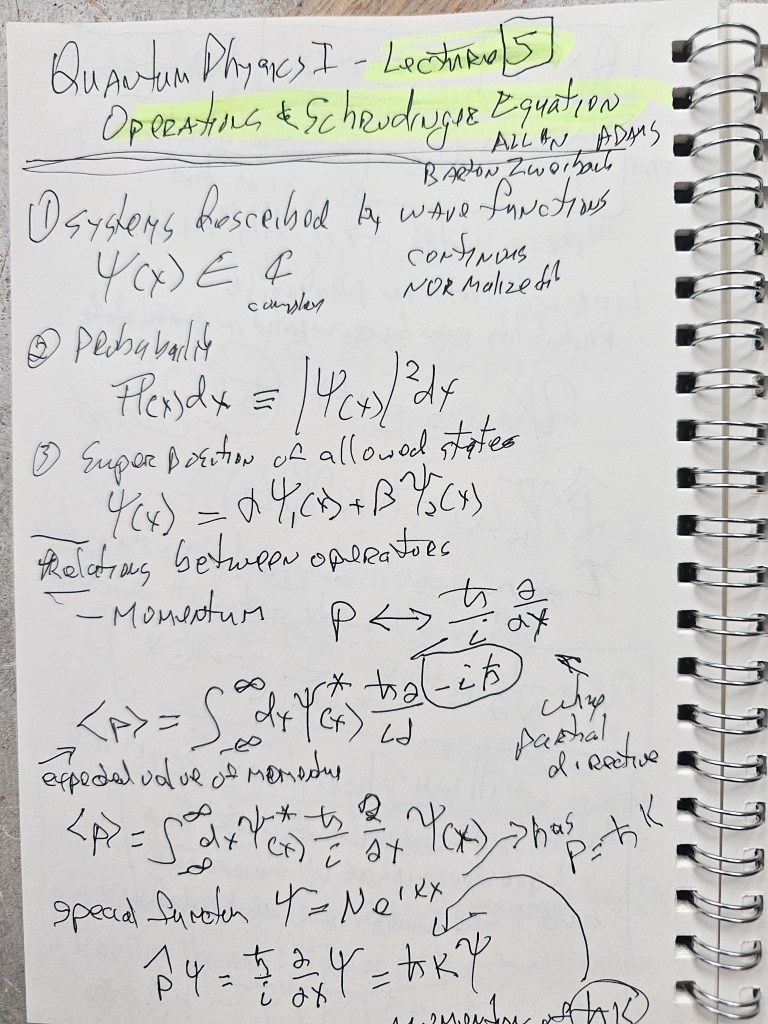 Quantum Physics I - Lecture 5
Operations & Schrodinger Equation
Allan Adams
Barton Zweibach
① systems described by wave functions
Ψ(x) ∈ ℂ continous
complex normalized
② Probability
ℙ(x)dx ≡ |Ψ(x)|²dx
③ Super position of allowed states
Ψ(x) = αΨ₁(x) + βΨ₂(x)
Relations between operators
- Momentum P ↔ ħ/i ∂/∂x
-iħ
⟨p⟩ = ∫_{-∞}^{∞} dx Ψ*(x) ħ∂/i∂
why
partial
directive
expected value of momentum
⟨p⟩ = ∫_{-∞}^{∞} dx Ψ*(x) ħ/i ∂/∂x Ψ(x) → has p = ħk
special function Ψ = Ne^{ikx}
p̂Ψ = ħ/i ∂/∂x Ψ = ħkΨ
momentum of ħk